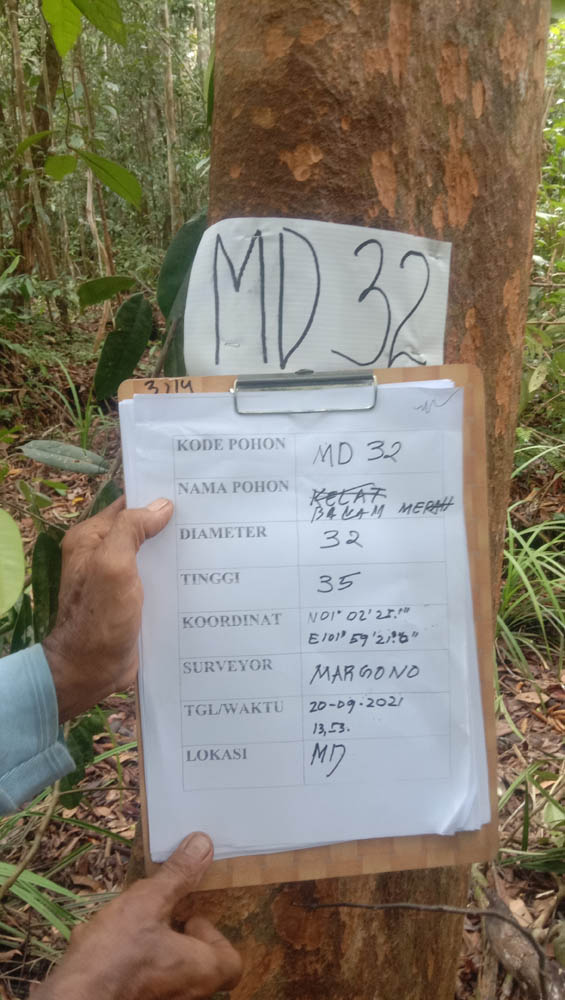 MD 32
3214
KODE POHON MD 32
NAMA POHON KELAT
BALAM MERAH
DIAMETER 32
TINGGI 35
KOORDINAT N01° 02' 25."
E101° 59' 21.6"
SURVEYOR MARGONO
TGL/WAKTU 20-09-2021
13,53.
LOKASI MD